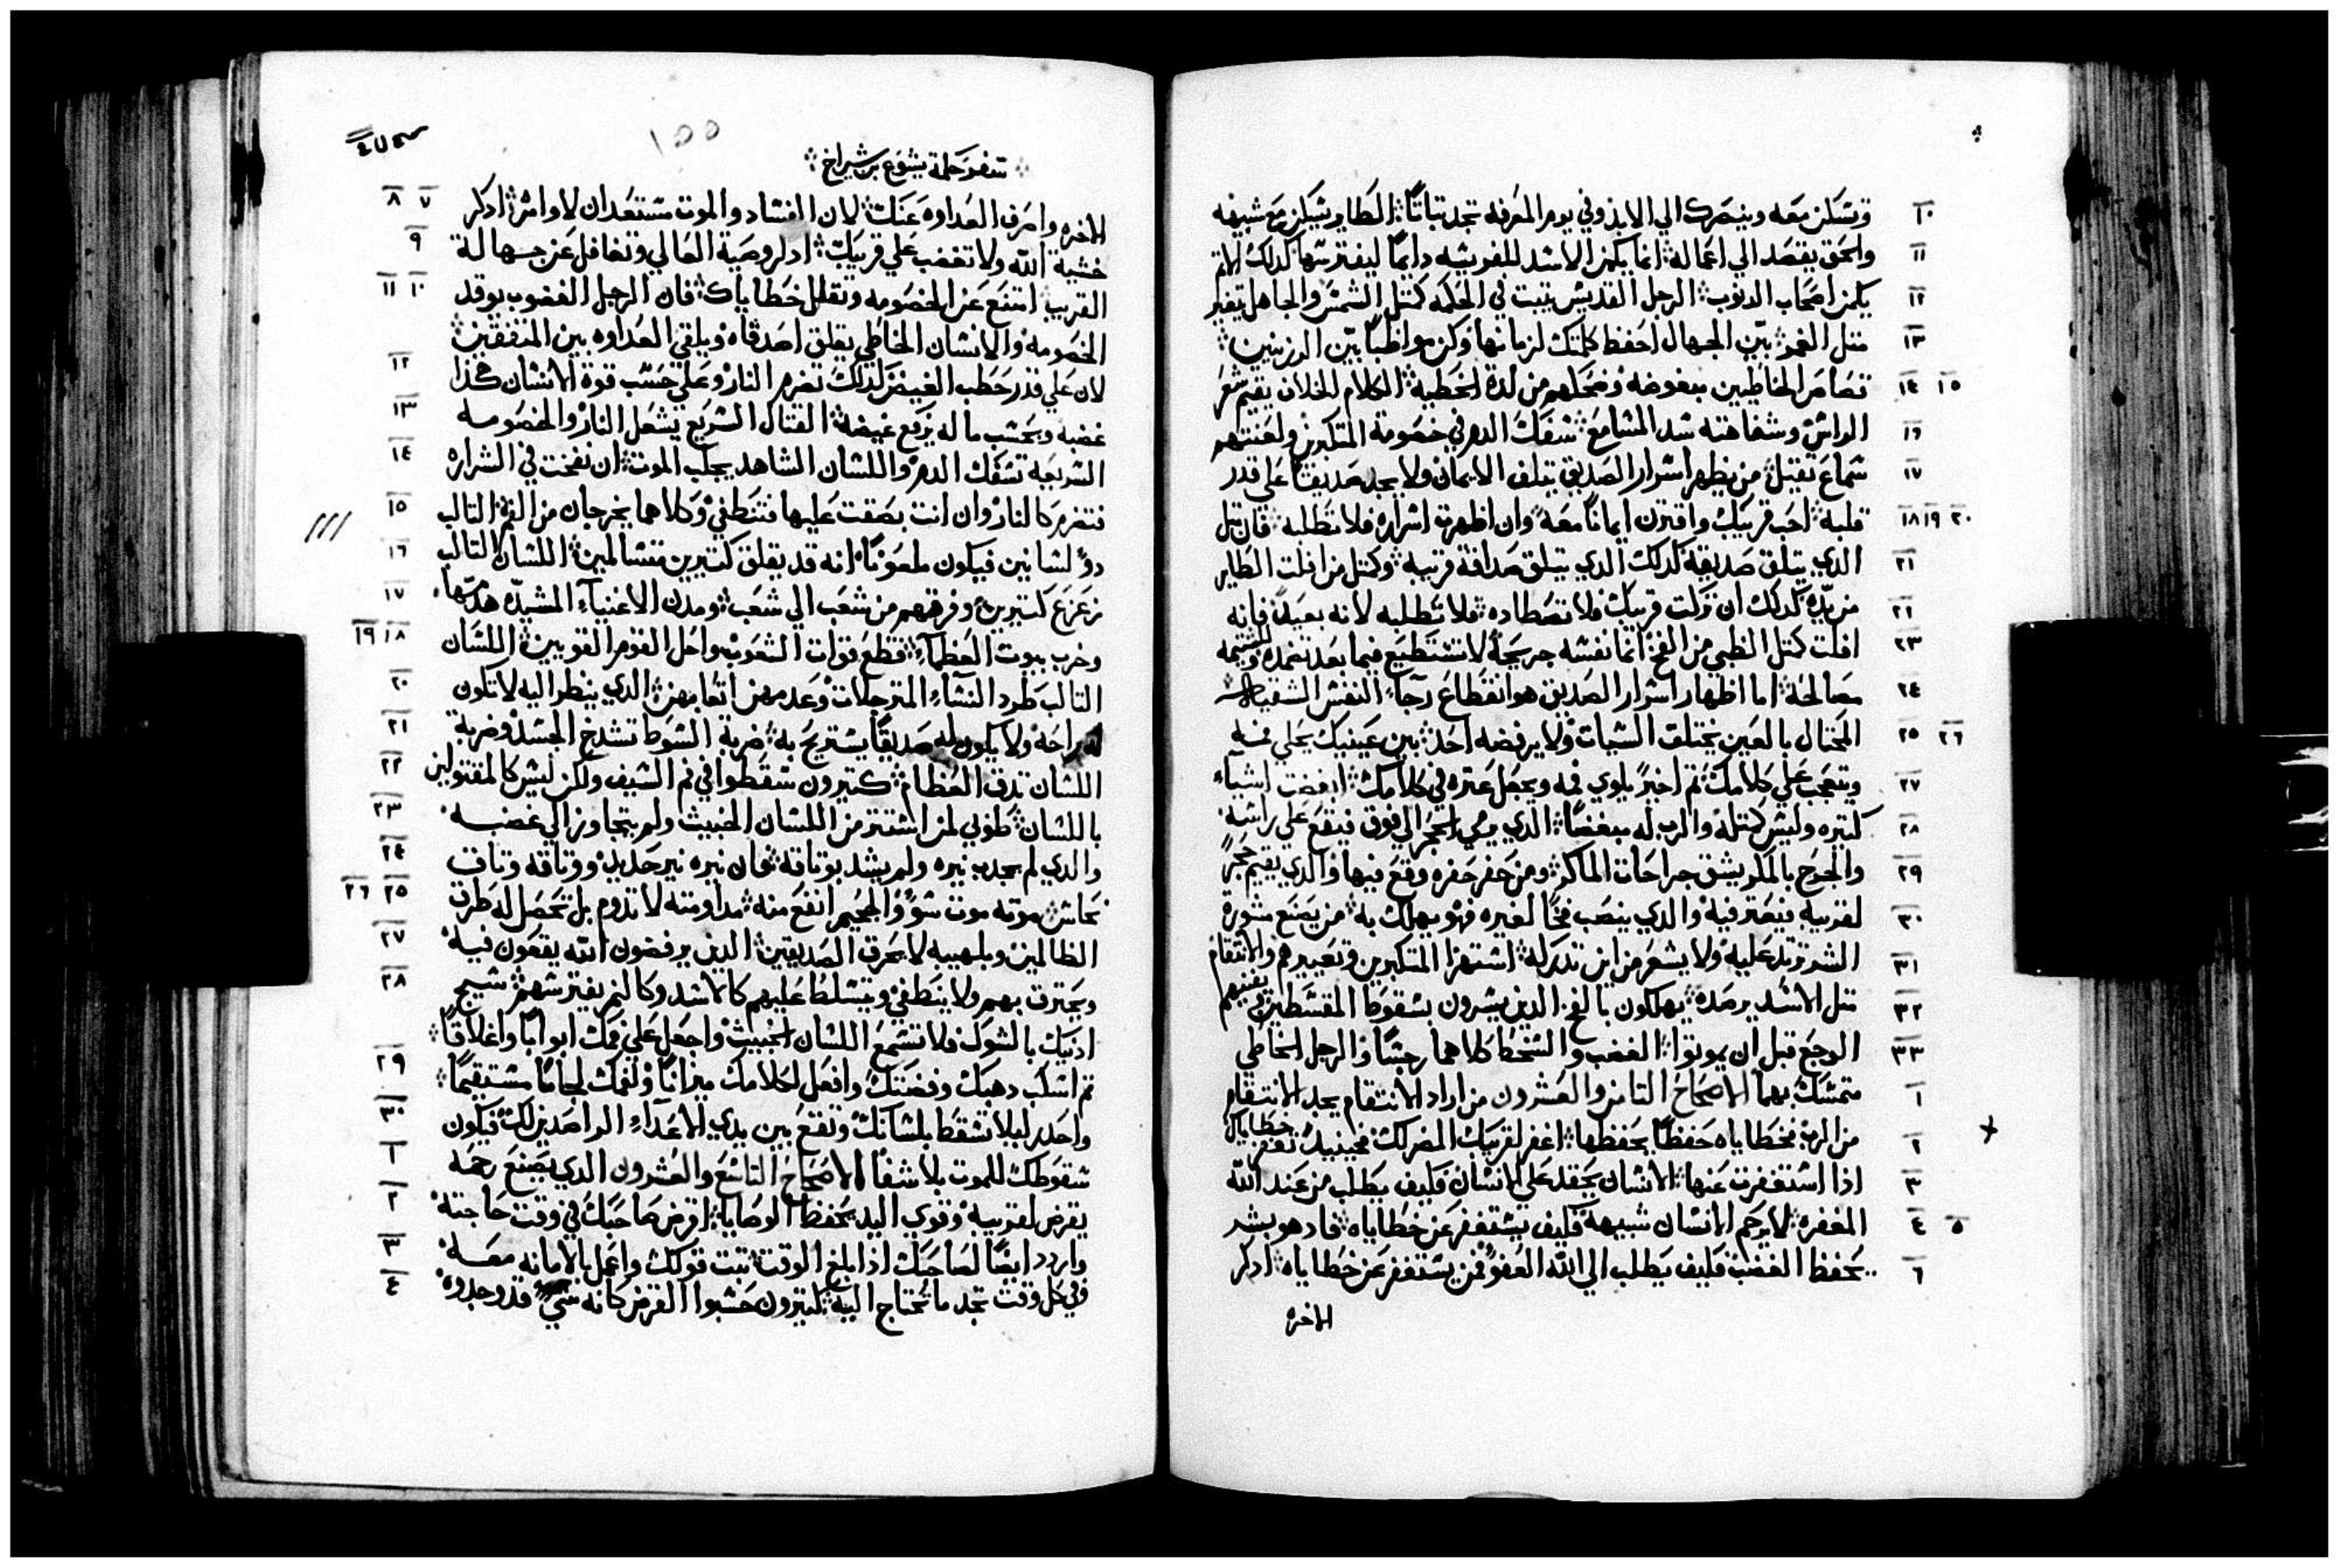 وتسكن معه وينصرك الي الابد وفي يوم المعرفة تجد تباتاً الطاير يسكن مع شبيهه ١٠
والحق يقصد الي اعماله انما يكمن الاسد للفريسه دايماً ليفترسها كدلك الاتم ١١
يكمن اصحاب الدنوب الرجل القديس يتبت في الحكمه كمتل الشمس والجاهل يتغير ١٢
متل القمر بين الجهال احفظ كلمتك لزمانها وكن مواظباً بين الرزينين ١٣
تصامر الخاطيين مبغوضه وضحكهم من لدة الخطية الكلام الحلاف يقيم شعر ١٤ ١٥
الراس وسفاهته سد المسامع سفك الدم في خصومة المتكبرين ولعنتهم ١٦
سماع تقيل من يظهر اسرار الصديق يتلف الايمان ولا يجد صديقاً علي قدر ١٧
قلبه احب قريبك واقترن ايماناً معه وان اظهرت اسراره فلا تطلبه فان متل ١٨ ١٩ ٢٠
الدي يتلف صديقه كدلك الدي يتلف صداقة قريبه وكمتل من افلت الطاير ٢١
من يده كدلك ان تركت قريبك فلا تصطاده فلا تطلبه لانه بعيداً فانه ٢٢
افلت كمتل الظبي من الفخ انما نفسه جريحة لا تستطيع فيما بعد تضمده وللشتيمه ٢٣
مصالحة اما اظهار اسرار الصديق هو انقطاع رجاء النفس الشقيه ٢٤
المحتال بالعين يختلق السيات ولا يرفضه احد بين عينيك يحلي فمه ٢٥ ٢٦
ويتعجب علي كلامك تم اخيراً يلوي فمه ويجعل عتره في كلامك ابغضت اشياء ٢٧
كتيره وليس كمتله والرب له مبغضاً الدي يرمي الحجر الي فوق فيقع علي راسه ٢٨
والجرح بالمكر يشق جراحات الماكر ومن حفر حفره وقع فيها والدي يقيم حجراً ٢٩
لقريبه فيعتر فيه والدي ينصب فخاً لغيره فهو يهلك به من يصنع مشورة ٣٠
الشر ترتد عليه ولا يشعر من اين تدركه استهزا المتكبرين وتعييرهم والانتقام ٣١
متل الاسد يرصده يهلكون بالفخ الدين يسرون بسقوط المقسطين ويفنيهم ٣٢
الوجع قبل ان يموتوا الغضب والسخط كلاهما رجساً والرجل الخاطي ٣٣
متمسك بهما الاصحاح التامن والعشرون من اراد الانتقام يجد الانتقام ١
من الرب فخطاياه حفظاً يحفظها اغفر لقريبك المضر لك فحينيد تغفر خطاياك ٢
ادا استغفرت عنها الانسان يحقد علي الانسان فكيف يطلب من عند الله ٣
المغفره لا يرحم الانسان شبيهه فكيف يستغفر عن خطاياه فاد هو بشر ٤ ٥
يحفظ الغضب فكيف يطلب الي الله العفو فمن يستغفر عن خطاياه ادكر ٦
الاخره
١٥٥
سفر حكمة يشوع بن شيراخ
الاخره واصرف العداوه عنك لان الفساد والموت مستعدان لاوامره ادكر ٧ ٨
خشية الله ولا تغضب علي قريبك ادكر وصية العالي وتغافل عن جهالة ٩
القريب امتنع عن الخصومه وتقلل خطاياك فان الرجل الغضوب يوقد ١٠ ١١
الخصومه والانسان الخاطي يقلق اصدقاه ويلقي العداوه بين المتفقين
لان علي قدر حطب الغيض كدلك تضرم النار وعلي حسب قوة الانسان هكدا ١٢
غضبه وبحسب ماله يرفع غيضه القتال السريع يشعل النار والخصومه ١٣
السريعه تسفك الدم واللسان الشاهد يجلب الموت ان نفخت في الشراره ١٤
فتضرم كالنار وان انت بصقت عليها فتنطفي وكلاهما يخرجان من الفم التالب ١٥
دو لسانين فيكون ملعوناً انه قد يقلق كتيرين متسالمين اللسان التالب ١٦
زعزع كتيرين وفرقهم من شعب الي شعب ومدن الاغنياء المشيده هدمها ١٧
وخرب بيوت العظماء قطع قوات الشعوب واحل القوم القويين اللسان ١٨ ١٩
التالب طرد النساء المترجلات وعدمهن اتعابهن الدي ينظر اليه لا تكون ٢٠
له راحة ولا يكون له صديقاً يستريح به ضربة السوط تشدخ الجسد وضربة ٢١
اللسان تدق العظام كتيرون سقطوا في فم السيف ولكن ليس كالمقتولين ٢٢
باللسان طوبي لمن استتر من اللسان الخبيث ولم يتجاوز الي غضبه ٢٣
والدي لم يجدب نيره ولم يشد بوتاقه فان نيره نير حديد ووتاقه وتاق ٢٤
نحاس موته موت سوء والجحيم انفع منه مداومته لا تدوم بل تحصل له طرق ٢٥ ٢٦
الظالمين وبلهيبه لا يحرق الصديقين الدين يرفضون الله يقعون فيه ٢٧
ويحترق بهم ولا ينطفي ويتسلط عليهم كالاسد وكالنمر يفترسهم سيج ٢٨
ادنيك بالشوك فلا تسمع اللسان الخبيث واجعل علي فمك ابواباً واغلاقاً
تم اسكب دهبك وفضتك وافعل لكلامك ميزاناً ولفمك لجاماً مستقيماً ٢٩
واحدر ليلا تسقط بلسانك وتقع بين يدي الاعداء الراصدين لك فيكون ٣٠
سقوطك للموت بلا شفا الاصحاح التاسع والعشرون الدي يصنع رحمه ١
يقرض لقريبه وقوي اليد يحفظ الوصايا اقرض صاحبك في وقت حاجته ٢
واردد ايضاً لصاحبك ادا بلغ الوقت تبت قولك واعمل بالامانه معه ٣
وفي كل وقت تجد ما تحتاج اليه كتيرون حسبوا القرض كانه شي قد وجدوه ٤